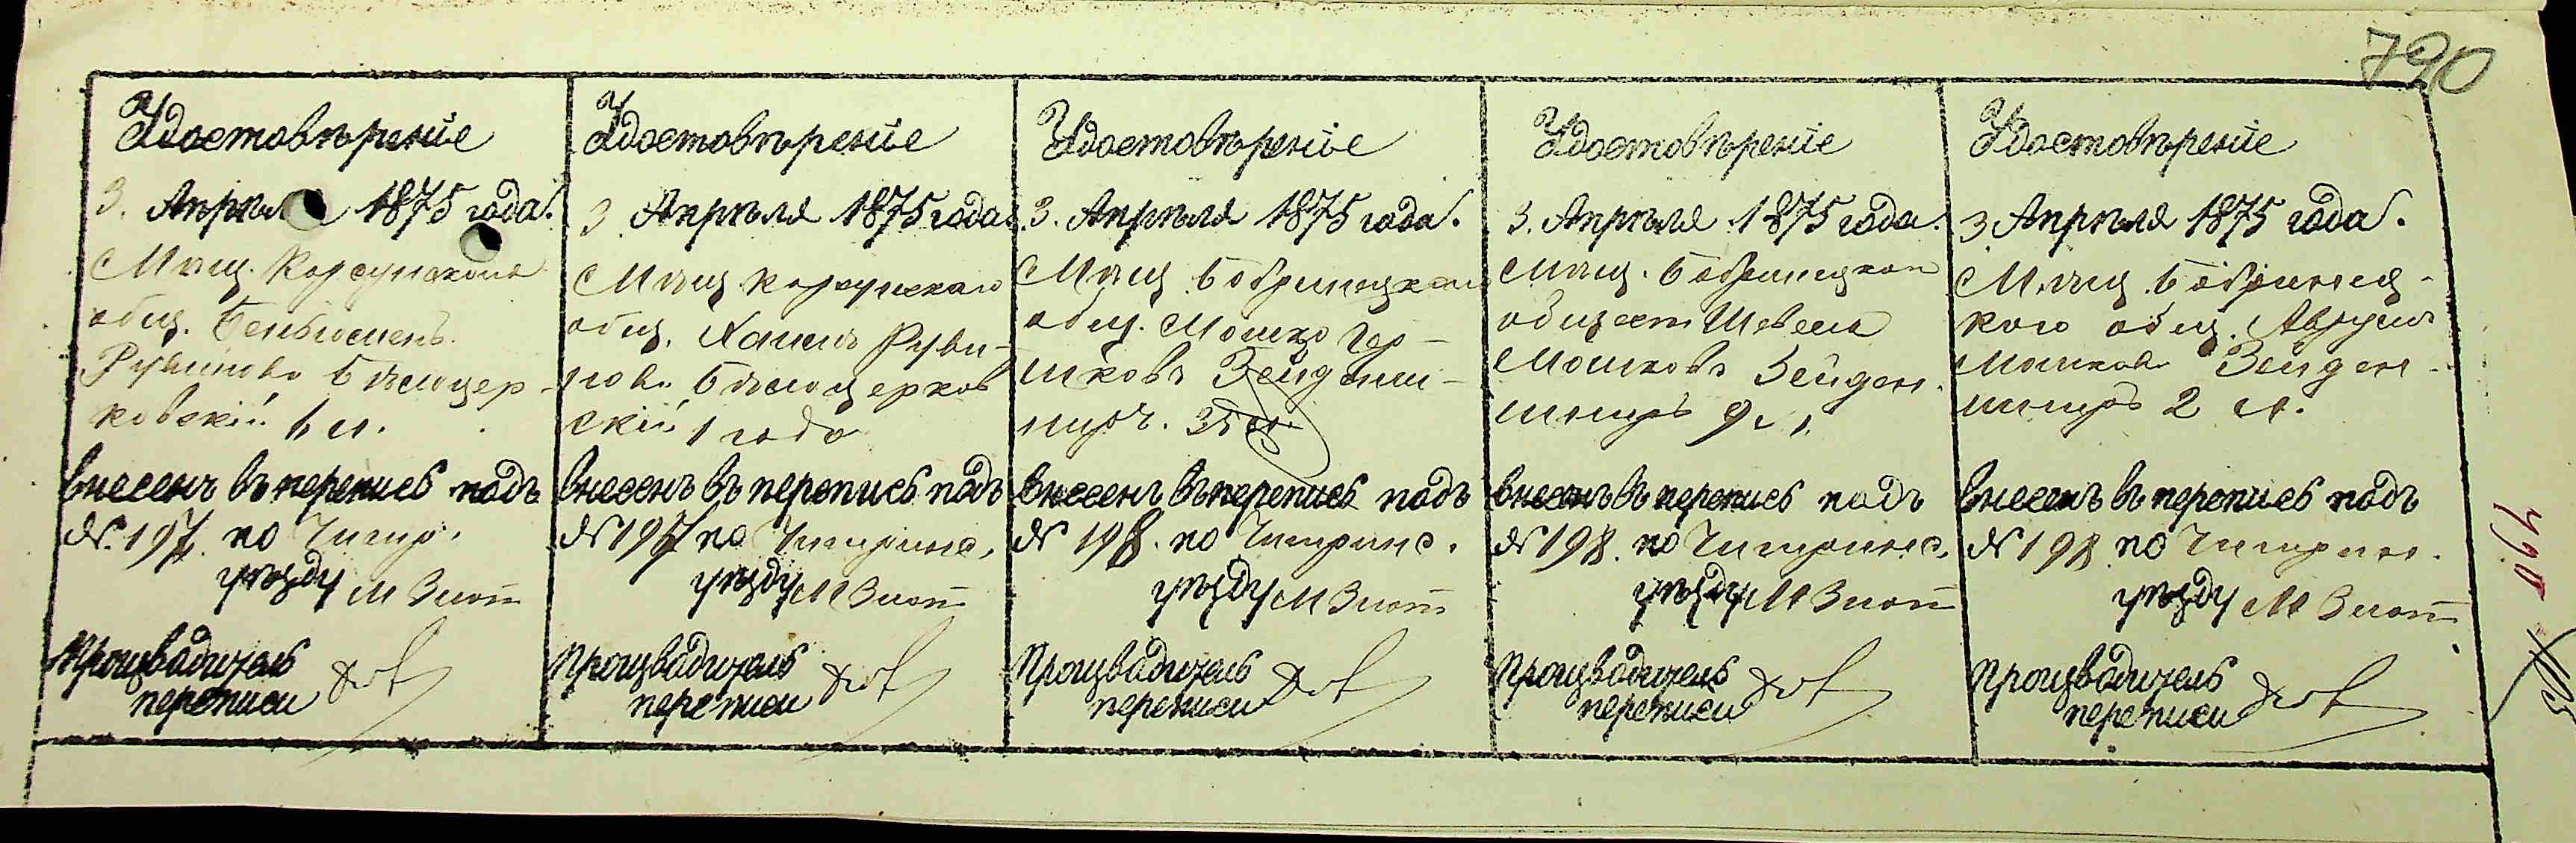 790
Удостовѣреніе
3. Апрѣля 1875 года.
Мѣщ. Корсунскаго
общ. Беньюменъ
Рувиновъ Бѣлоцер-
ковскій 6 л.
внесенъ въ перепись подъ
№. 197. по Чигир.
уѣзду М Злот
Производитель
переписи
Удостовѣреніе
3 Апрѣля 1875 года
Мѣщ Корсунскаго
общ. Хаимъ Руви-
новъ Бѣлоцерков
скій 1 года
внесенъ въ перепись подъ
№ 197 по Чигринс.
уѣзду М Злот
Производитель
переписи
Удостовѣреніе
3. Апрѣля 1875 года.
Мѣщ Бобринецкаго
общ. Мошко Гер-
шковъ
внесенъ въ перепись подъ
№ 198. по Чигринс.
уѣзду М Злот
Производитель
переписи
Удостовѣреніе
3. Апрѣля 1875 года.
Мѣщ. Бобринецкаго
общест
Мошковъ Зейден-
9 л.
внесенъ въ перепись подъ
№ 198. по Чигринс.
уѣзду М Злот
Производитель
переписи
Удостовѣреніе
3 Апрѣля 1875 года.
Мѣщ. Бобринец-
каго общ. Аврумъ
Мошковъ Зейден-
2 л.
внесенъ въ перепись подъ
№ 198 по Чигрин.
уѣзду М Злот
Производитель
переписи
790